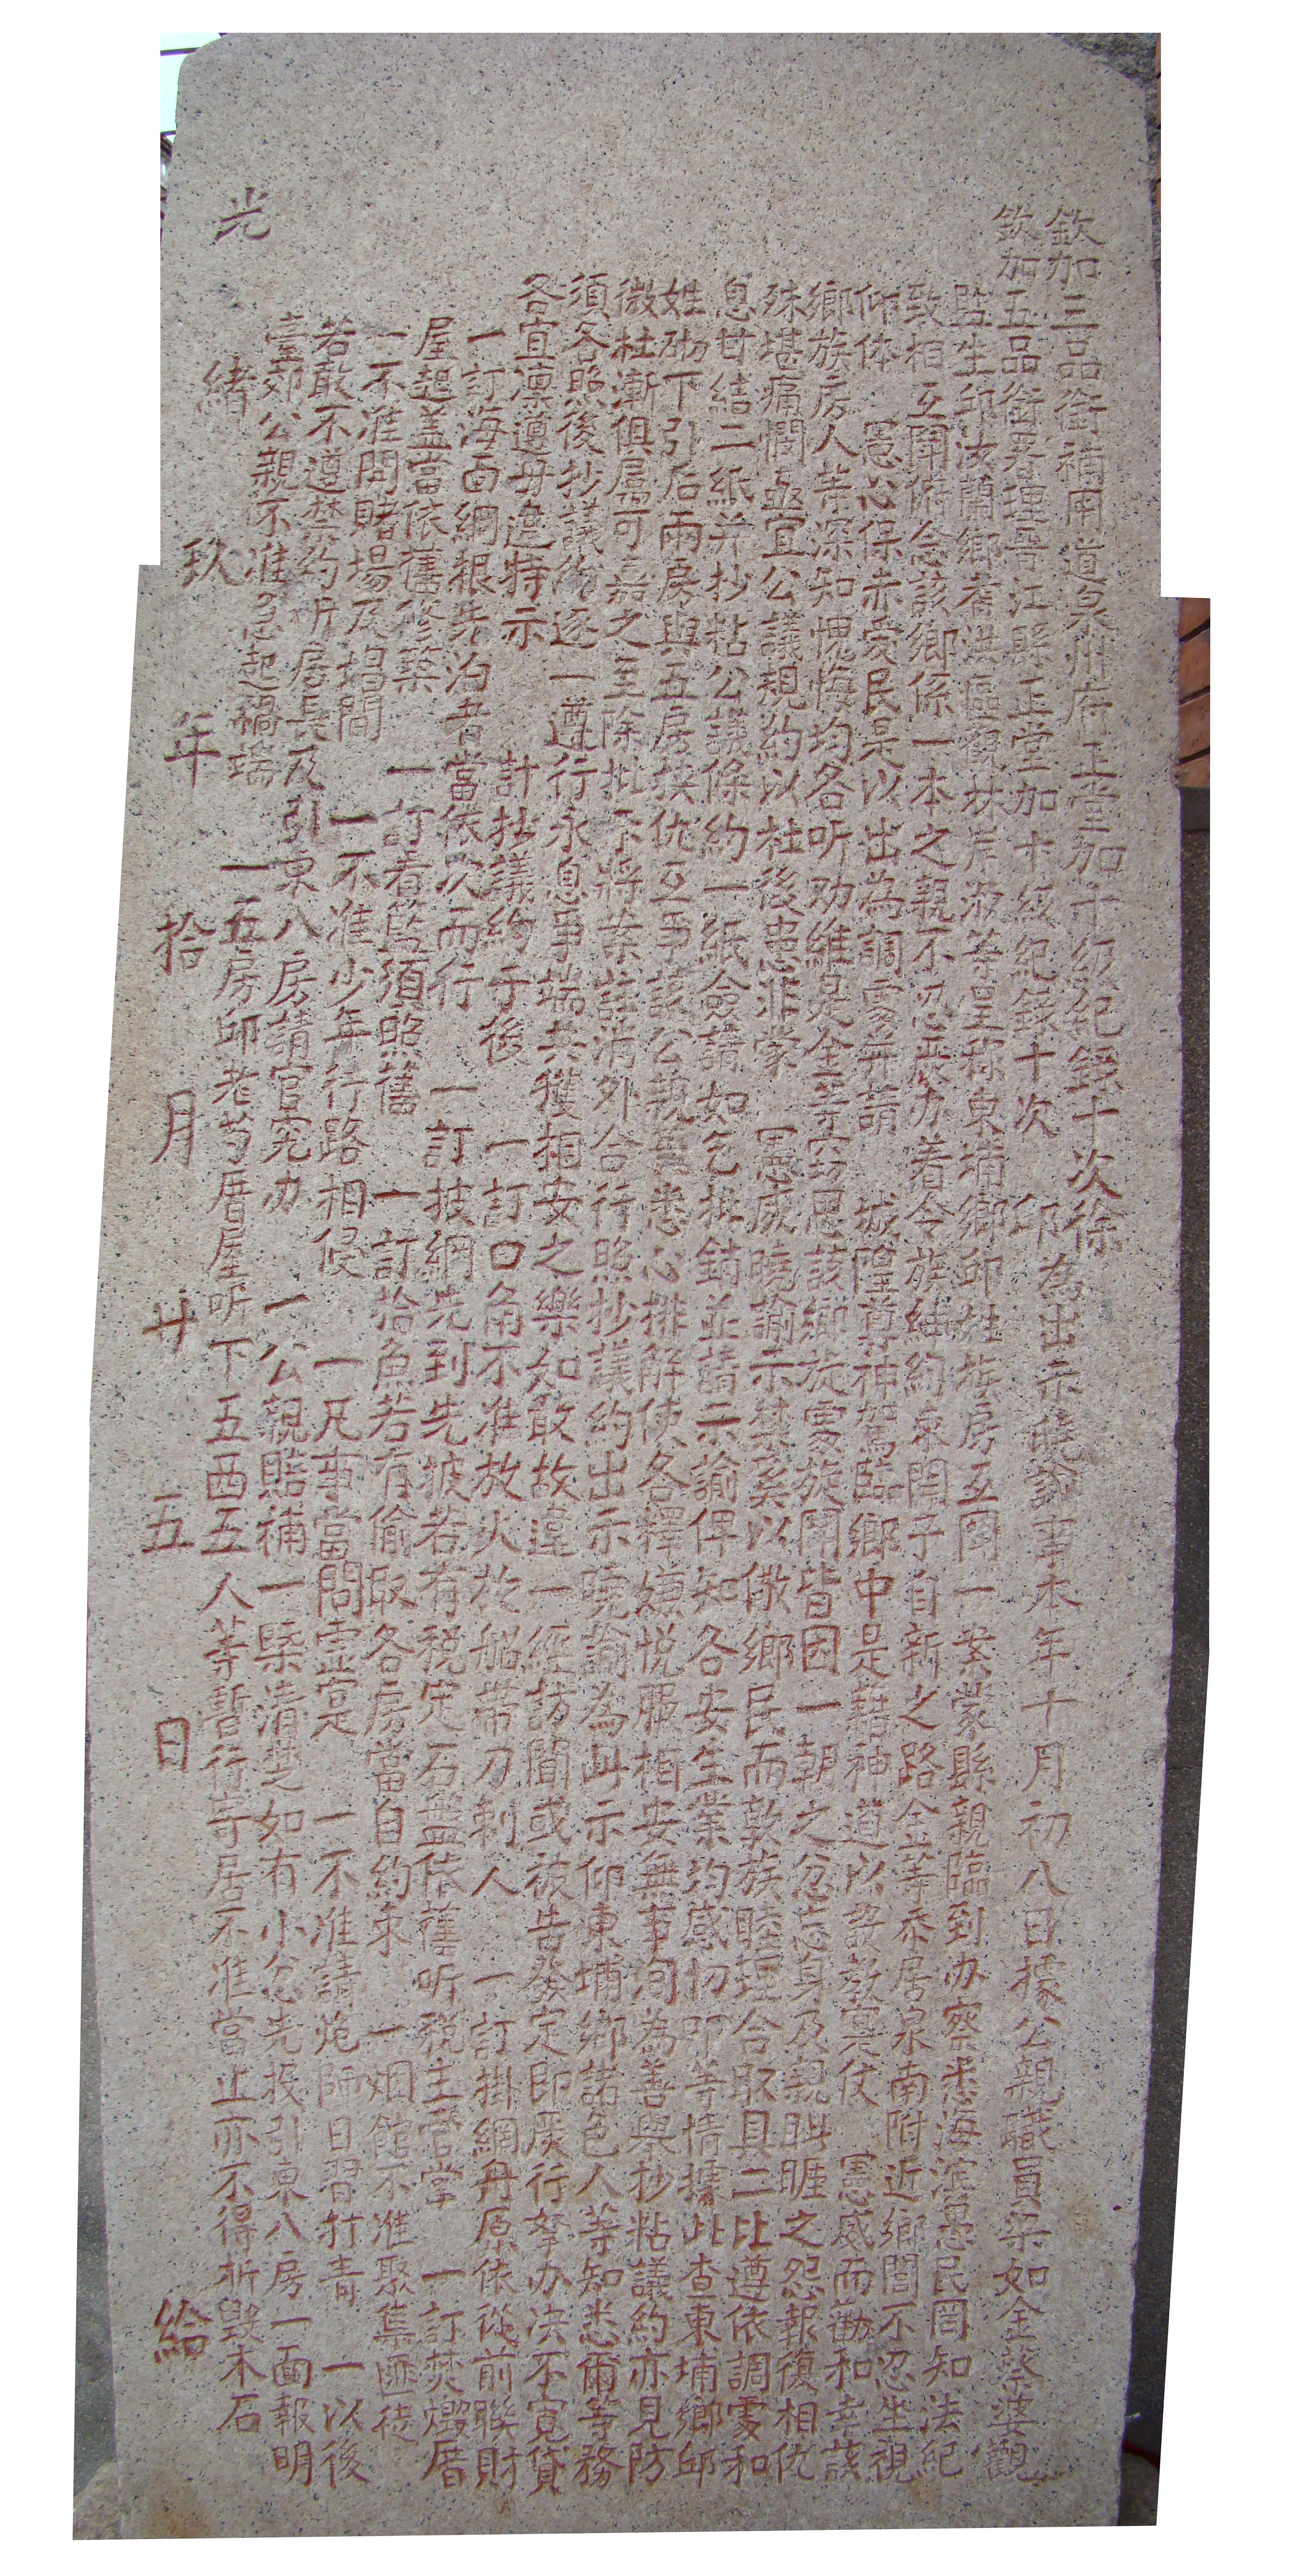 欽加三品銜補用道泉州府正堂加十級紀錄十次徐
欽加五品銜署理晉江縣正堂加十級紀錄十次 邱 為出示曉諭事本年十月初八日據公親職員梁如金蔡婆觀
監生邱汝蘭鄉耆洪區觀林岸淑等呈称東埔鄉邱姓族房互鬥一案蒙縣親臨到办察悉海濱愚民罔知法紀
致相互鬥俯念該鄉係一本之親不忍严办着令族紳約束開予自新之路金等忝居泉南附近鄉閭不忍坐視
仰体 憲心保赤愛民是以出為調處并請 城隍尊神駕臨鄉中是藉神道以設教冥使 憲感而勸和幸該
鄉族房人等深知愧悔均各听劝維是全等窃思該鄉旋處旋鬧皆因一朝之忿忘身及親眦睚之怨報復相仇
殊堪痛憫亟宜公議規約以杜後患非蒙 憲處曉諭示禁奚以儆鄉民而敦族睦理合取具二比遵依調處和
息甘結二紙并抄粘公議條約一紙僉請如乞批銷並請示諭俾知各安生業均感切叩等情據此查東埔鄉邱
姓砌下引后兩房與五房挾仇互爭該公親 悉心排解使各釋嫌悦服相安無事洵為善舉抄粘議約亦見防
微杜漸俱屬可嘉之至除批示將案註消外合行照抄議約出示曉諭為此示仰東埔鄉諸色人等知悉爾等務
須各照後抄議約逐一遵行永息爭端共獲相安之樂如敢故違一經訪聞或被告發定即嚴行拏办决不寬貸
各宜凛遵毋違特示 計抄議約于後 一訂口角不准放火於船帶刀刺人 一訂掛網丹原依從前聯財
一訂海面網艰先泊者當依次而行 一訂披網先到先披若有税定石盘依舊听税主管掌 一訂焚燬厝
屋起盖當依舊修築 一訂看監須照舊 一訂拾魚若有偷取各房當自約束 一烟館不准聚集匪徒
一不准開賭場及娼間 一不准少年行路相侵 一凡事當問虛寔 一不准請炮師目習打青 一以後
若敢不遵禁約听房長及引東八房請官究办 一公親賠補一槩清楚如有小忿先投引東八房一面報明
臺郊公親不准急起禍端 一五房邱老芎厝屋听下五西五人等暫行寺居不准當止亦不得拆毀木石
光緒玖年拾月廿五日 給